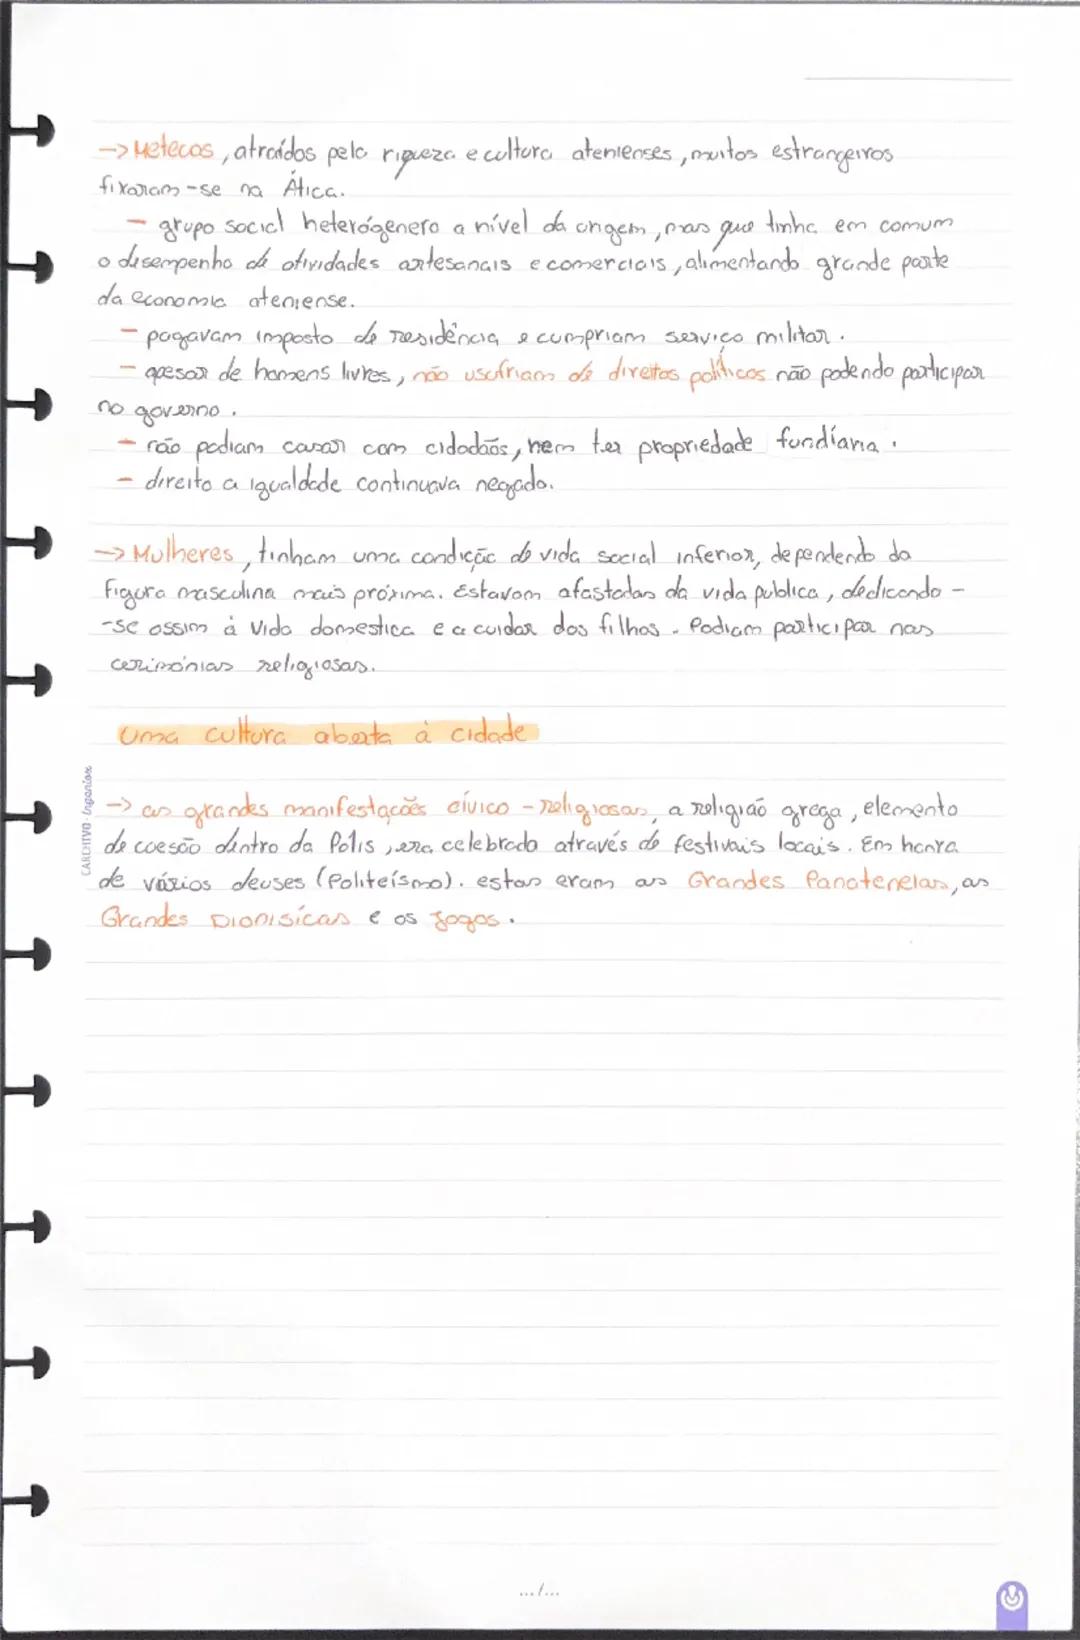 -> Metecos, atraídos pela riqueza e cultura atenienses, muitos estrangeiros
fixaram-se na Ática.
- grupo social heterógenero a nível da origem, mas que tinha em comum
o desempenho de atividades artesanais e comerciais, alimentando grande parte
da economia ateniense.
- pagavam imposto de residência e cumpriam serviço militar.
- apesar de homens livres, não usufriam de direitos políticos não podendo participar
no governo.
- não podiam casar com cidadãos, nem ter propriedade fundíaria.
- direito a igualdade continuava negado.
-> Mulheres, tinham uma condição de vida social inferior, dependendo da
figura masculina mais próxima. Estavam afastadas da vida publica, dedicando-
-se assim à vida domestica e a cuidar dos filhos. Podiam participar nas
cerimónias religiosas.
Uma cultura aberta à cidade
-> as grandes manifestações cívico-religiosas, a religião grega, elemento
de coesão dentro da Polis, era celebrada através de festivais locais. Em honra
de vários deuses (Politeísmo). estas eram as Grandes Panatenelas, as
Grandes Dionisícas e os Jogos.
CARCHIVO-Ingeniox
.../...